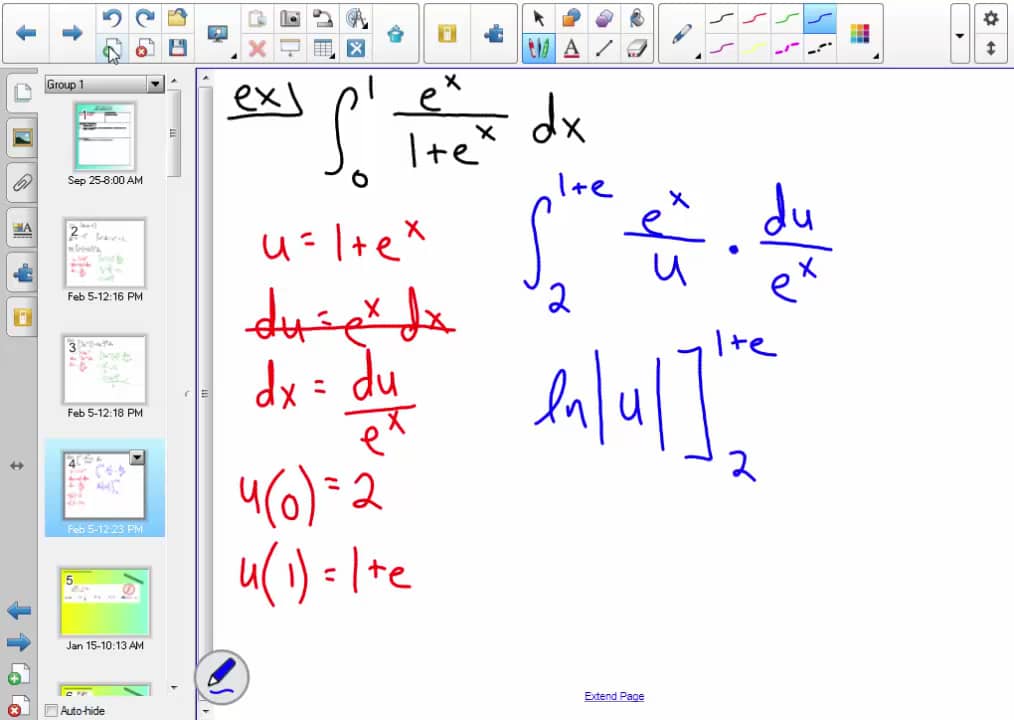 Group 1
1
Sep 25-8:00 AM
2
Feb 5-12:16 PM
3
Feb 5-12:18 PM
4
Feb 5-12:23 PM
5
Jan 15-10:13 AM
6
Auto-hide
ex) ∫₀¹ eˣ/(1+eˣ) dx
u = 1+eˣ
du = eˣ dx
dx = du/eˣ
u(0) = 2
u(1) = 1+e
∫₂¹⁺ᵉ eˣ/u · du/eˣ
ln|u| ]₂¹⁺ᵉ
Extend Page